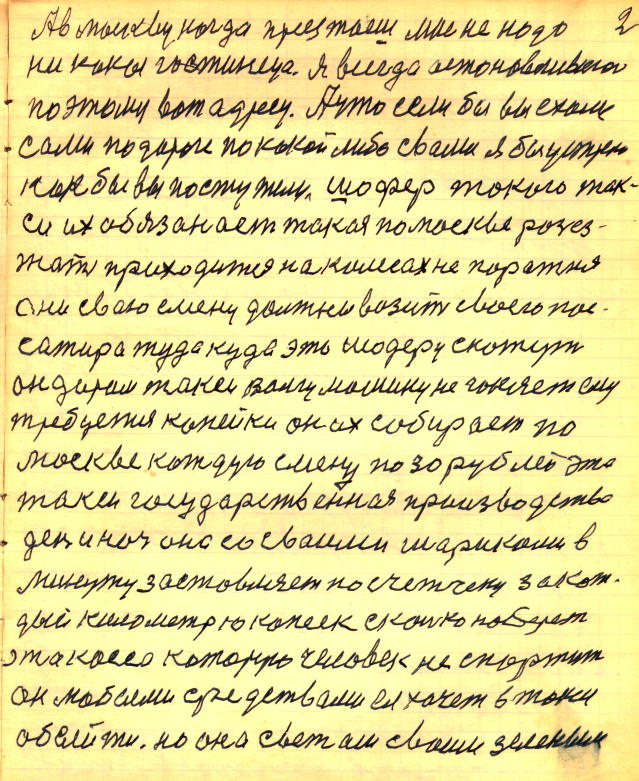 А в москву когда приезжаеш мне не надо 2
ни какой гостиница. я всегда астоновливаюсь
поэтому вот адресу. А што если бы вы ехали
сами подороге по какой либо с вами я бы устрен
как бы вы поступили, шофер такого так-
си их обязанаст такая помоскве розез-
жать приходится на колесах не поражня
они сваю смену должны возить своего пас-
сажира туда куда это шоферу скажут
он даром такси волгу машину не гоняет ему
требуется копейки он их собирает по
москве каждую смену по 30 рублей это
такси государственная производства
ден и ноч она со сваими шариками в
минуту заставляет по счетчику за каж-
дый километр 10 копеек сколко наберет
эта касса каторую человек не спортит
он любыми средствами ея хочет втаки
обайти. но она светом своим зеленым